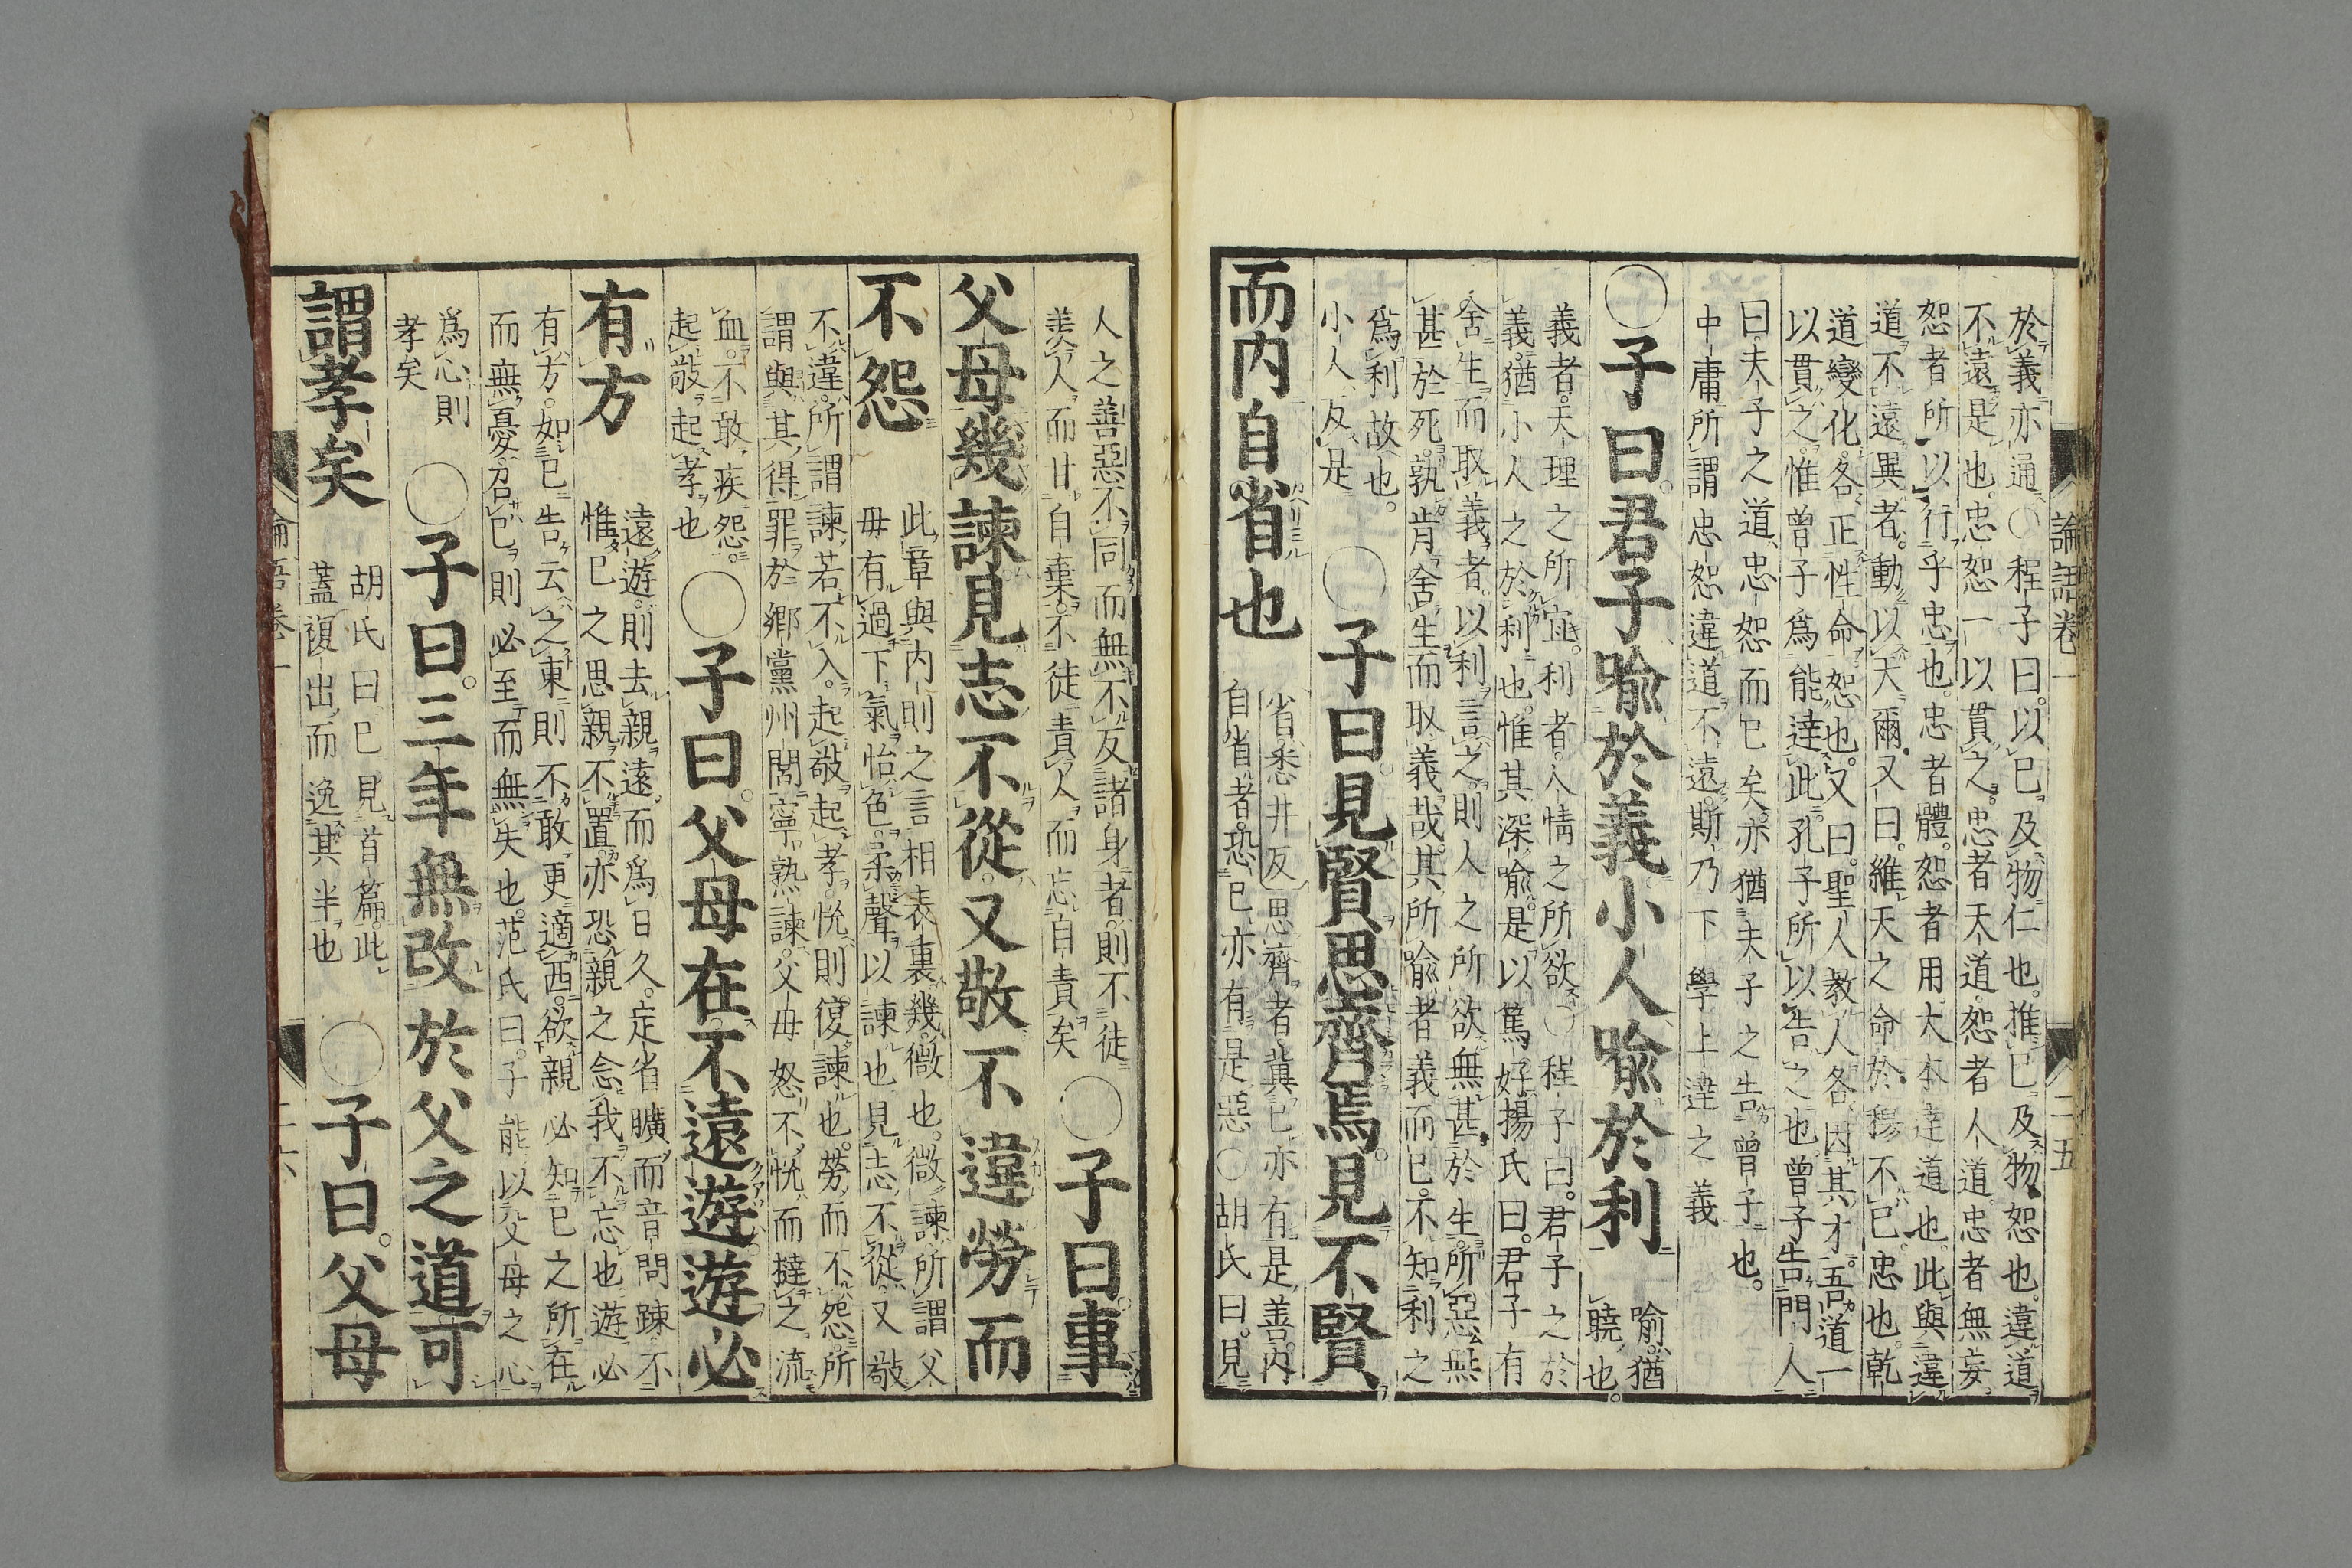 論語卷一 二五
於義亦通○程子曰。以已及物仁也。推已及物。恕也。違道
不遠是也。忠恕一以貫之。忠者天道。恕者人道。忠者無妄。
恕者所以行乎忠也。忠者體。恕者用。大本達道也。此與違
道不遠異者。動以天爾。又曰。維天之命於穆不已。忠也。乾
道變化。各正性命。恕也。又曰。聖人教人各因其才。吾道一
以貫之。惟曾子爲能達此。孔子所以告之也。曾子告門人
曰。夫子之道、忠恕而已矣。亦猶夫子之告曾子也。
中庸所謂忠恕違道不遠。斯乃下學上達之義
○子曰。君子喩於義小人喩於利
喩。猶
曉也。
義者。天理之所宜。利者。人情之所欲○程子曰。君子之於
義。猶小人之於利也。惟其深喩。是以篤好。揚氏曰。君子有
舍生而取義者。以利言之。則人之所欲無甚於生。所惡無
甚於死。孰肯舍生而取義哉。其所喩者義而已。不知利之
爲利故也。
小人反是
○子曰。見賢思齊焉。見不賢
而内自省也
省悉井反 思齊者冀已亦有是善。内
自省者。恐已亦有是惡○胡氏曰。見
人之善惡不同而無不反諸身者。則不徒
羨人而甘自棄。不徒責人而忘自責矣
○子曰。事
父母幾諫見志不從。又敬不違勞而
不怨
此章與内則之言相表裏。幾。微也。微諫。所謂父
母有過下氣怡色。柔聲以諫也。見志不從。又敬
不違。所謂諫若不入。起敬起孝。悅則復諫也。勞而不怨。所
謂與其得罪於鄉黨州閭寧熟諫。父母怒不悅而撻之流
血。不敢疾怨。
起敬起孝也
○子曰。父母在。不遠遊。遊必
有方
遠遊。則去親遠而爲日久。定省曠而音問踈。不
惟已之思親不置。亦恐親之念我不忘也。遊必
有方。如已告云之東則不敢更適西。欲親必知已之所在
而無憂。召已則必至而無失也。范氏曰。子能以父母之心
爲心則
孝矣
○子曰。三年無改於父之道可
謂孝矣
胡氏曰已見首篇。此
蓋復出而逸其半也
○子曰。父母
論語卷一 二六